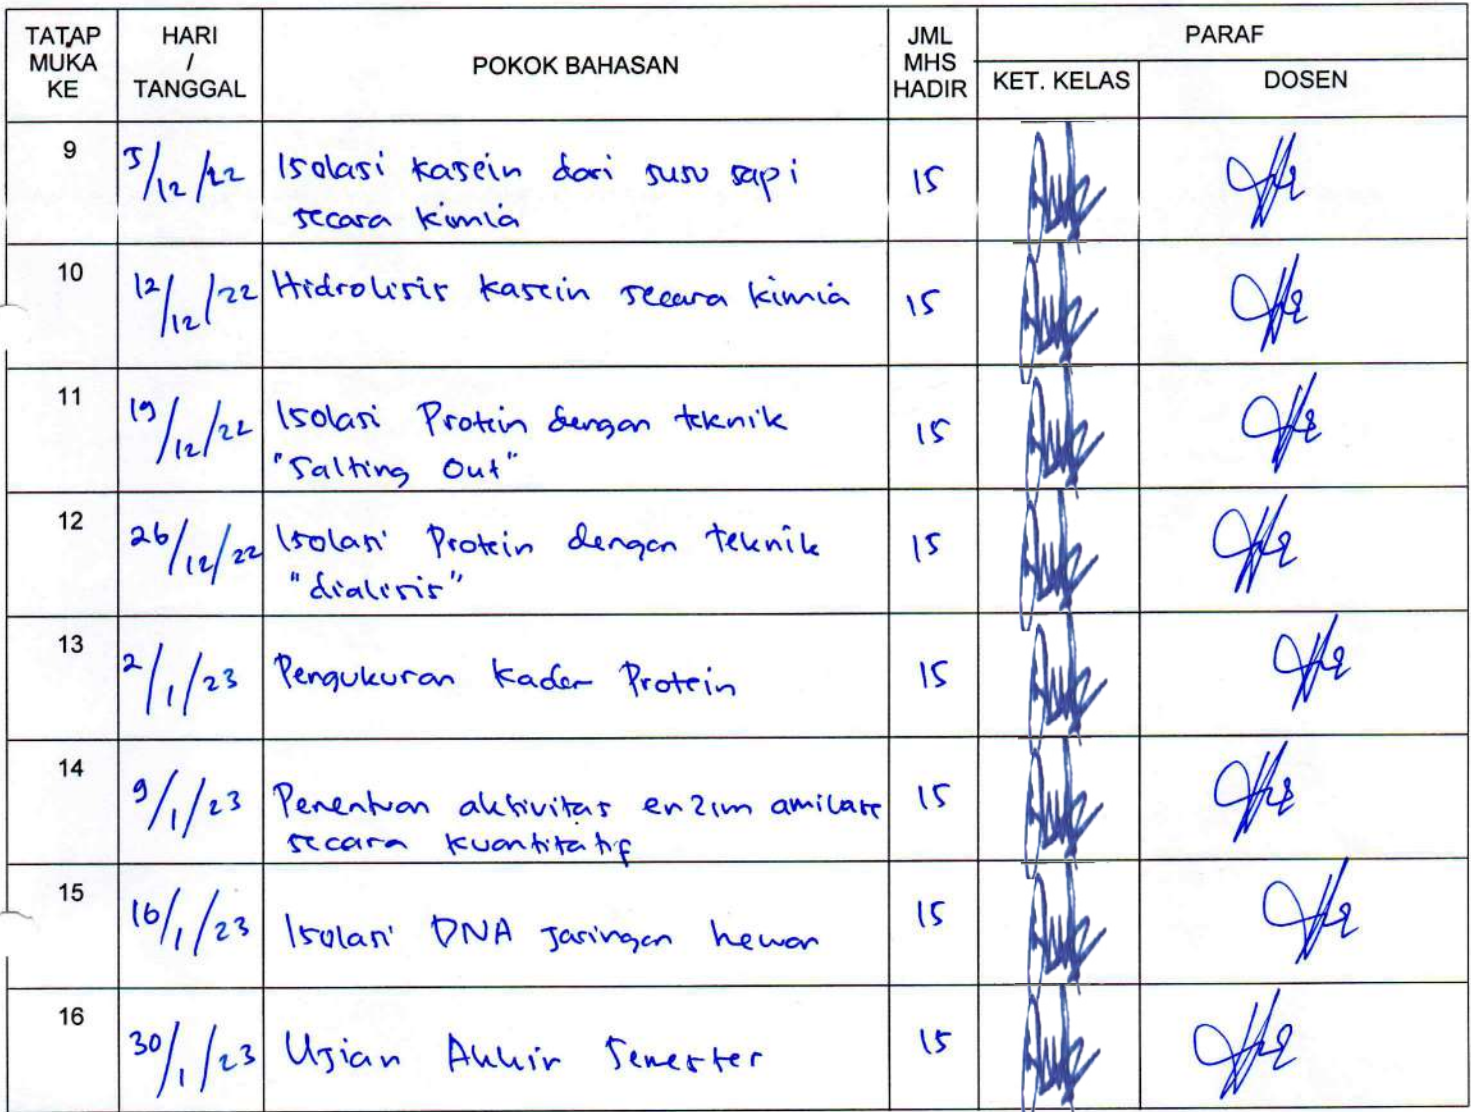 TATAP MUKA KE HARI / TANGGAL POKOK BAHASAN JML MHS HADIR PARAF
KET. KELAS DOSEN
9 5/12/22 Isolasi kasein dari susu sapi 15
secara kimia
10 12/12/22 Hidrolisis kasein secara kimia 15
11 19/12/22 Isolasi Protein dengan teknik 15
"Salting Out"
12 26/12/22 Isolasi Protein dengan teknik 15
"dialisis"
13 2/1/23 Pengukuran Kadar Protein 15
14 9/1/23 Penentuan aktivitas enzim amilase 15
secara kuantitatif
15 16/1/23 Isolasi DNA Jaringan hewan 15
16 30/1/23 Ujian Akhir Semester 15